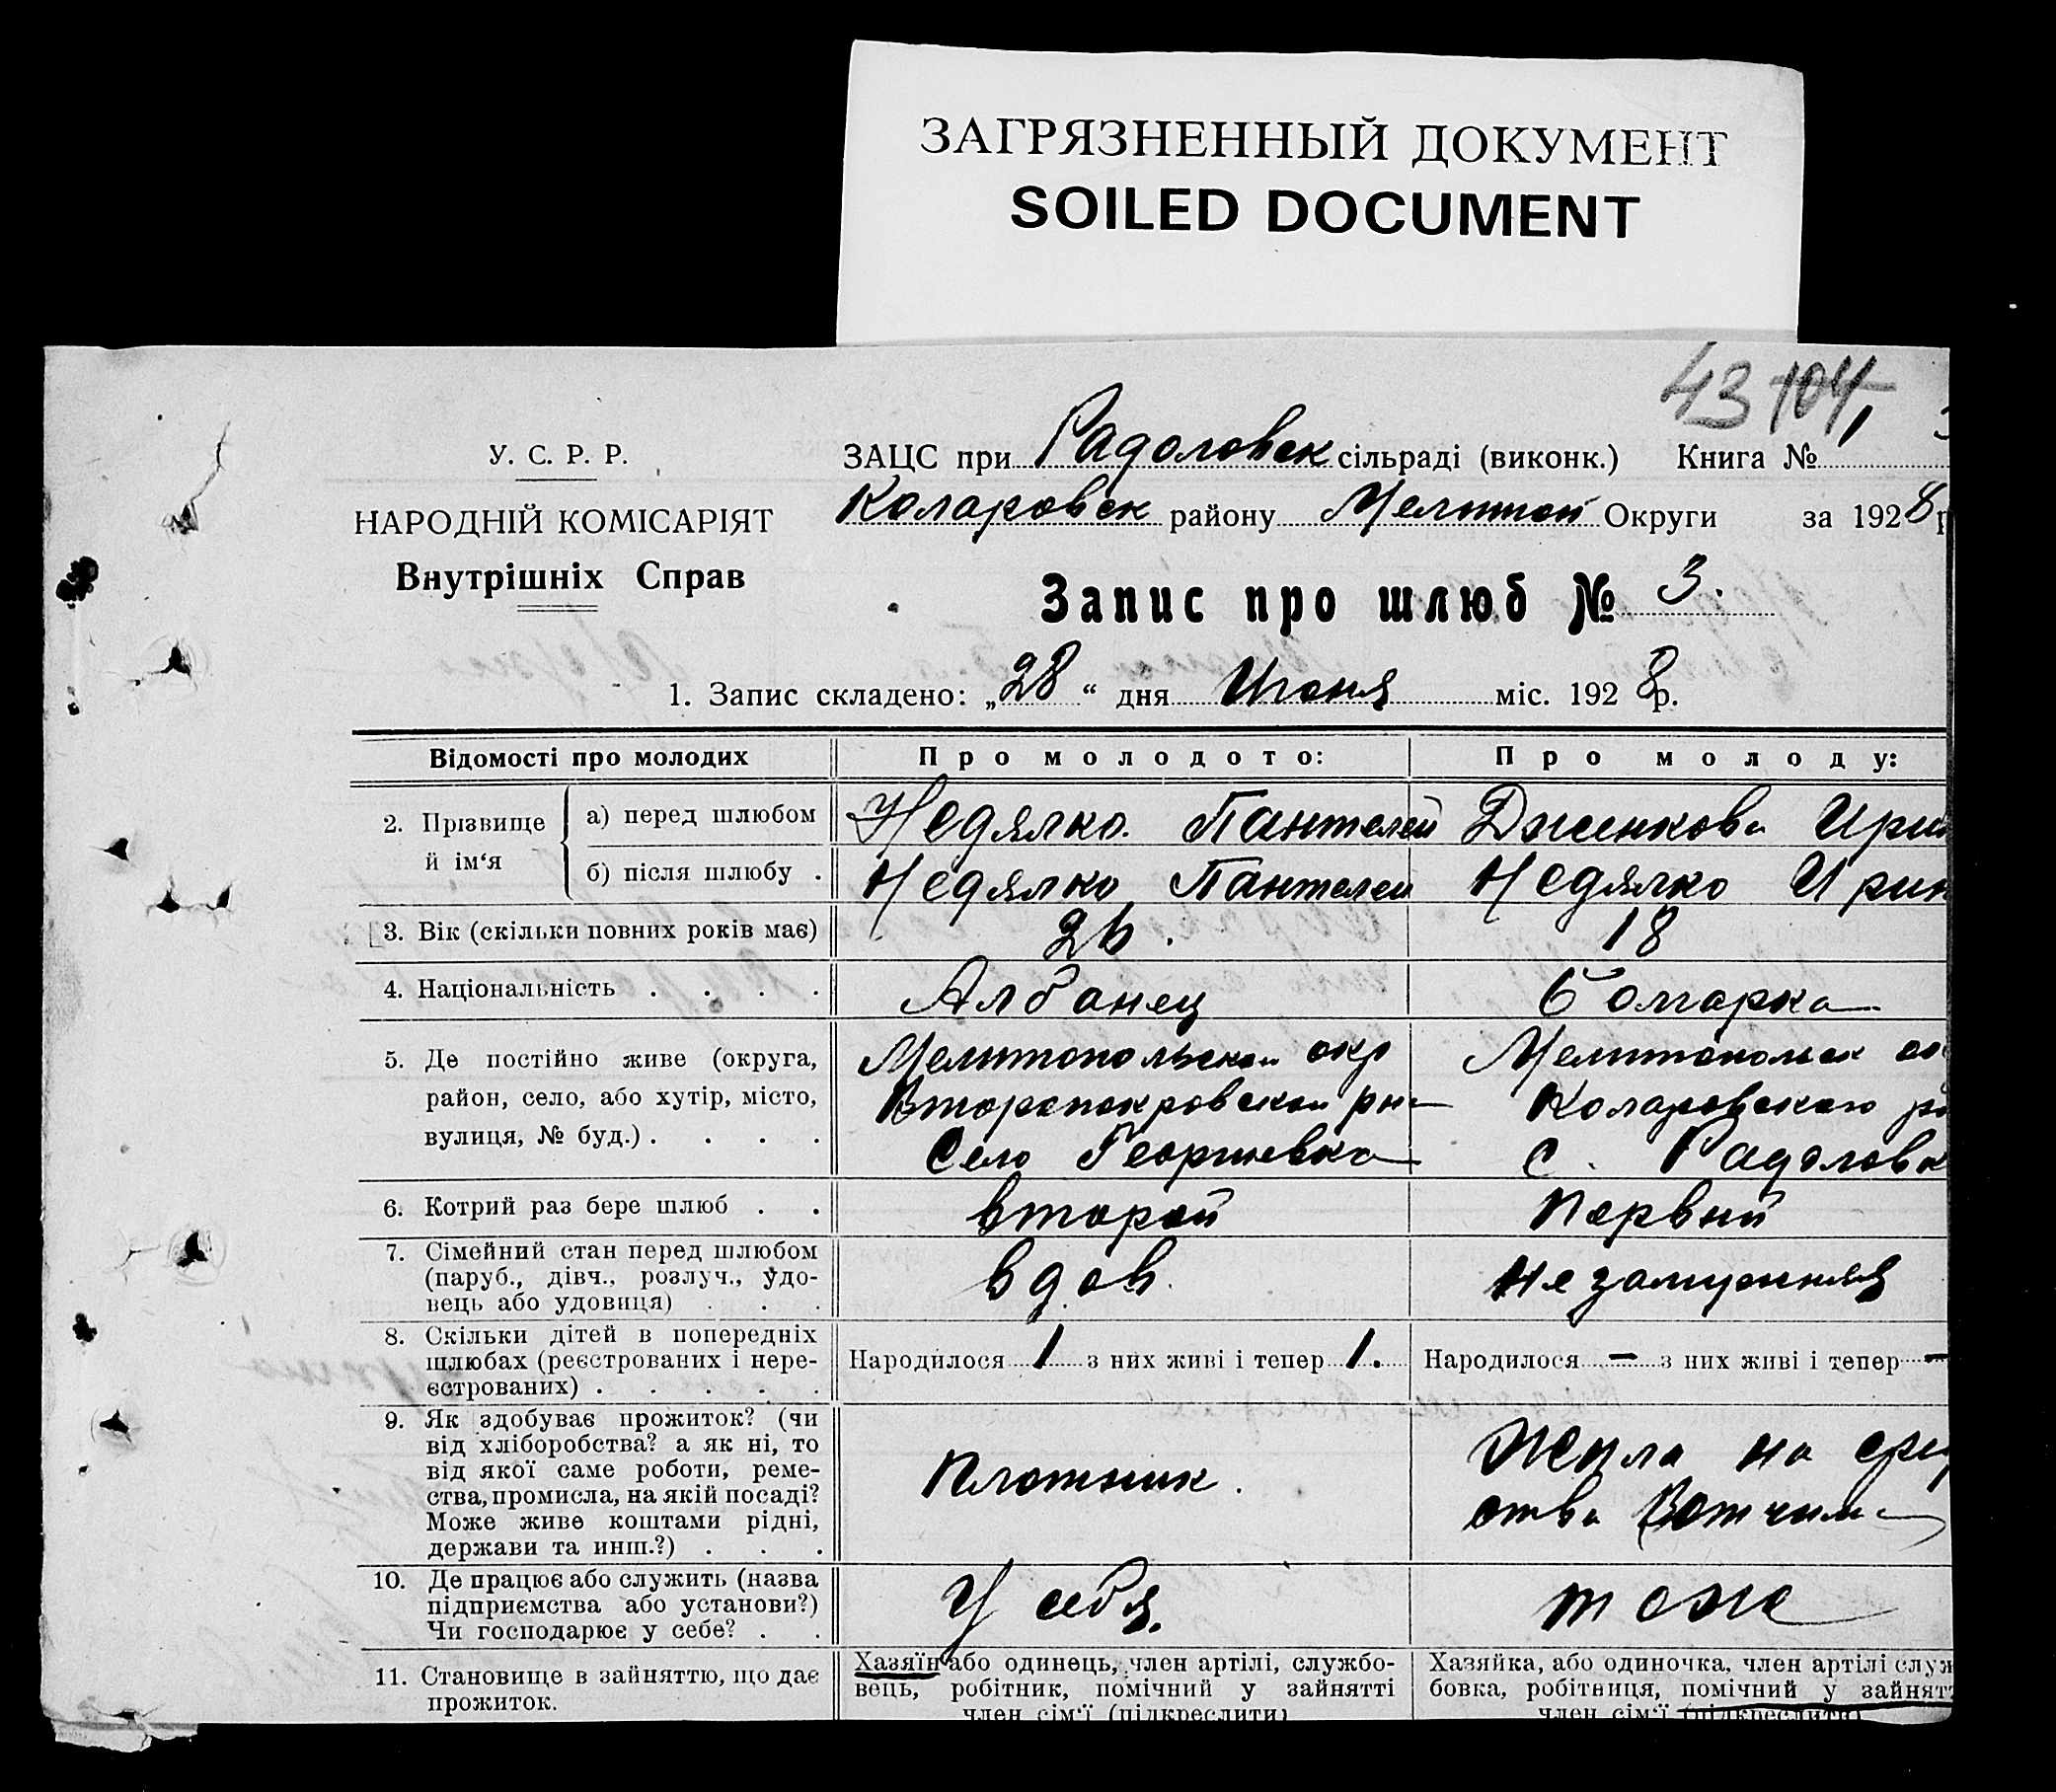 ЗАГРЯЗНЕННЫЙ ДОКУМЕНТ
SOILED DOCUMENT
43 104
У. С. Р. Р.
НАРОДНІЙ КОМІСАРІЯТ
Внутрішніх Справ
ЗАЦС при Радоловск сільраді (виконк.) Книга № 1
Коларовск району Мелитоп Округи за 1928 р
Запис про шлюб № 3.
1. Запис складено: „28“ дня Июня міс. 1928 р.
Відомості про молодих
Про молодого:
Про молоду:
2. Прізвище й ім‘я
а) перед шлюбом
Недялко Пантелей
Дженкова Ирин
б) після шлюбу .
Недялко Пантелей
Недялко Ирин
3. Вік (скільки повних років має)
26.
18
4. Національність . . . .
Албанец
болгарка
5. Де постійно живе (округа,
район, село, або хутір, місто,
вулиця, № буд.) . . . .
Мелитопольской окр
Второпокровского рна
Село Георгиевка
Мелитопольск ок
Коларовского р
с. Радоловк
6. Котрий раз бере шлюб . .
второй
Первый
7. Сімейний стан перед шлюбом
(паруб., дівч., розлуч., удо-
вець або удовиця) . . .
вдов.
незамужняя
8. Скільки дітей в попередніх
шлюбах (реєстрованих і нере-
єстрованих) . . . . .
Народилося 1 з них живі і тепер 1.
Народилося — з них живі і тепер —
9. Як здобуває прожиток? (чи
від хліборобства? а як ні, то
від якої саме роботи, реме-
ства, промисла, на якій посаді?
Може живе коштами рідні,
держави та инш.?) . . .
Плотник.
Жила на сред
ства Вотчима
10. Де працює або служить (назва
підприємства або установи?)
Чи господарює у себе? . .
У себя.
тоже
11. Становище в зайняттю, що дає
прожиток.
Хазяїн або одинець, член артілі, службо-
вець, робітник, помічний у зайнятті
член сім‘ї (підкреслити)
Хазяйка, або одиночка, член артілі служ
бовка, робітниця, помічний у зайнят
член сім‘ї (підкреслити)